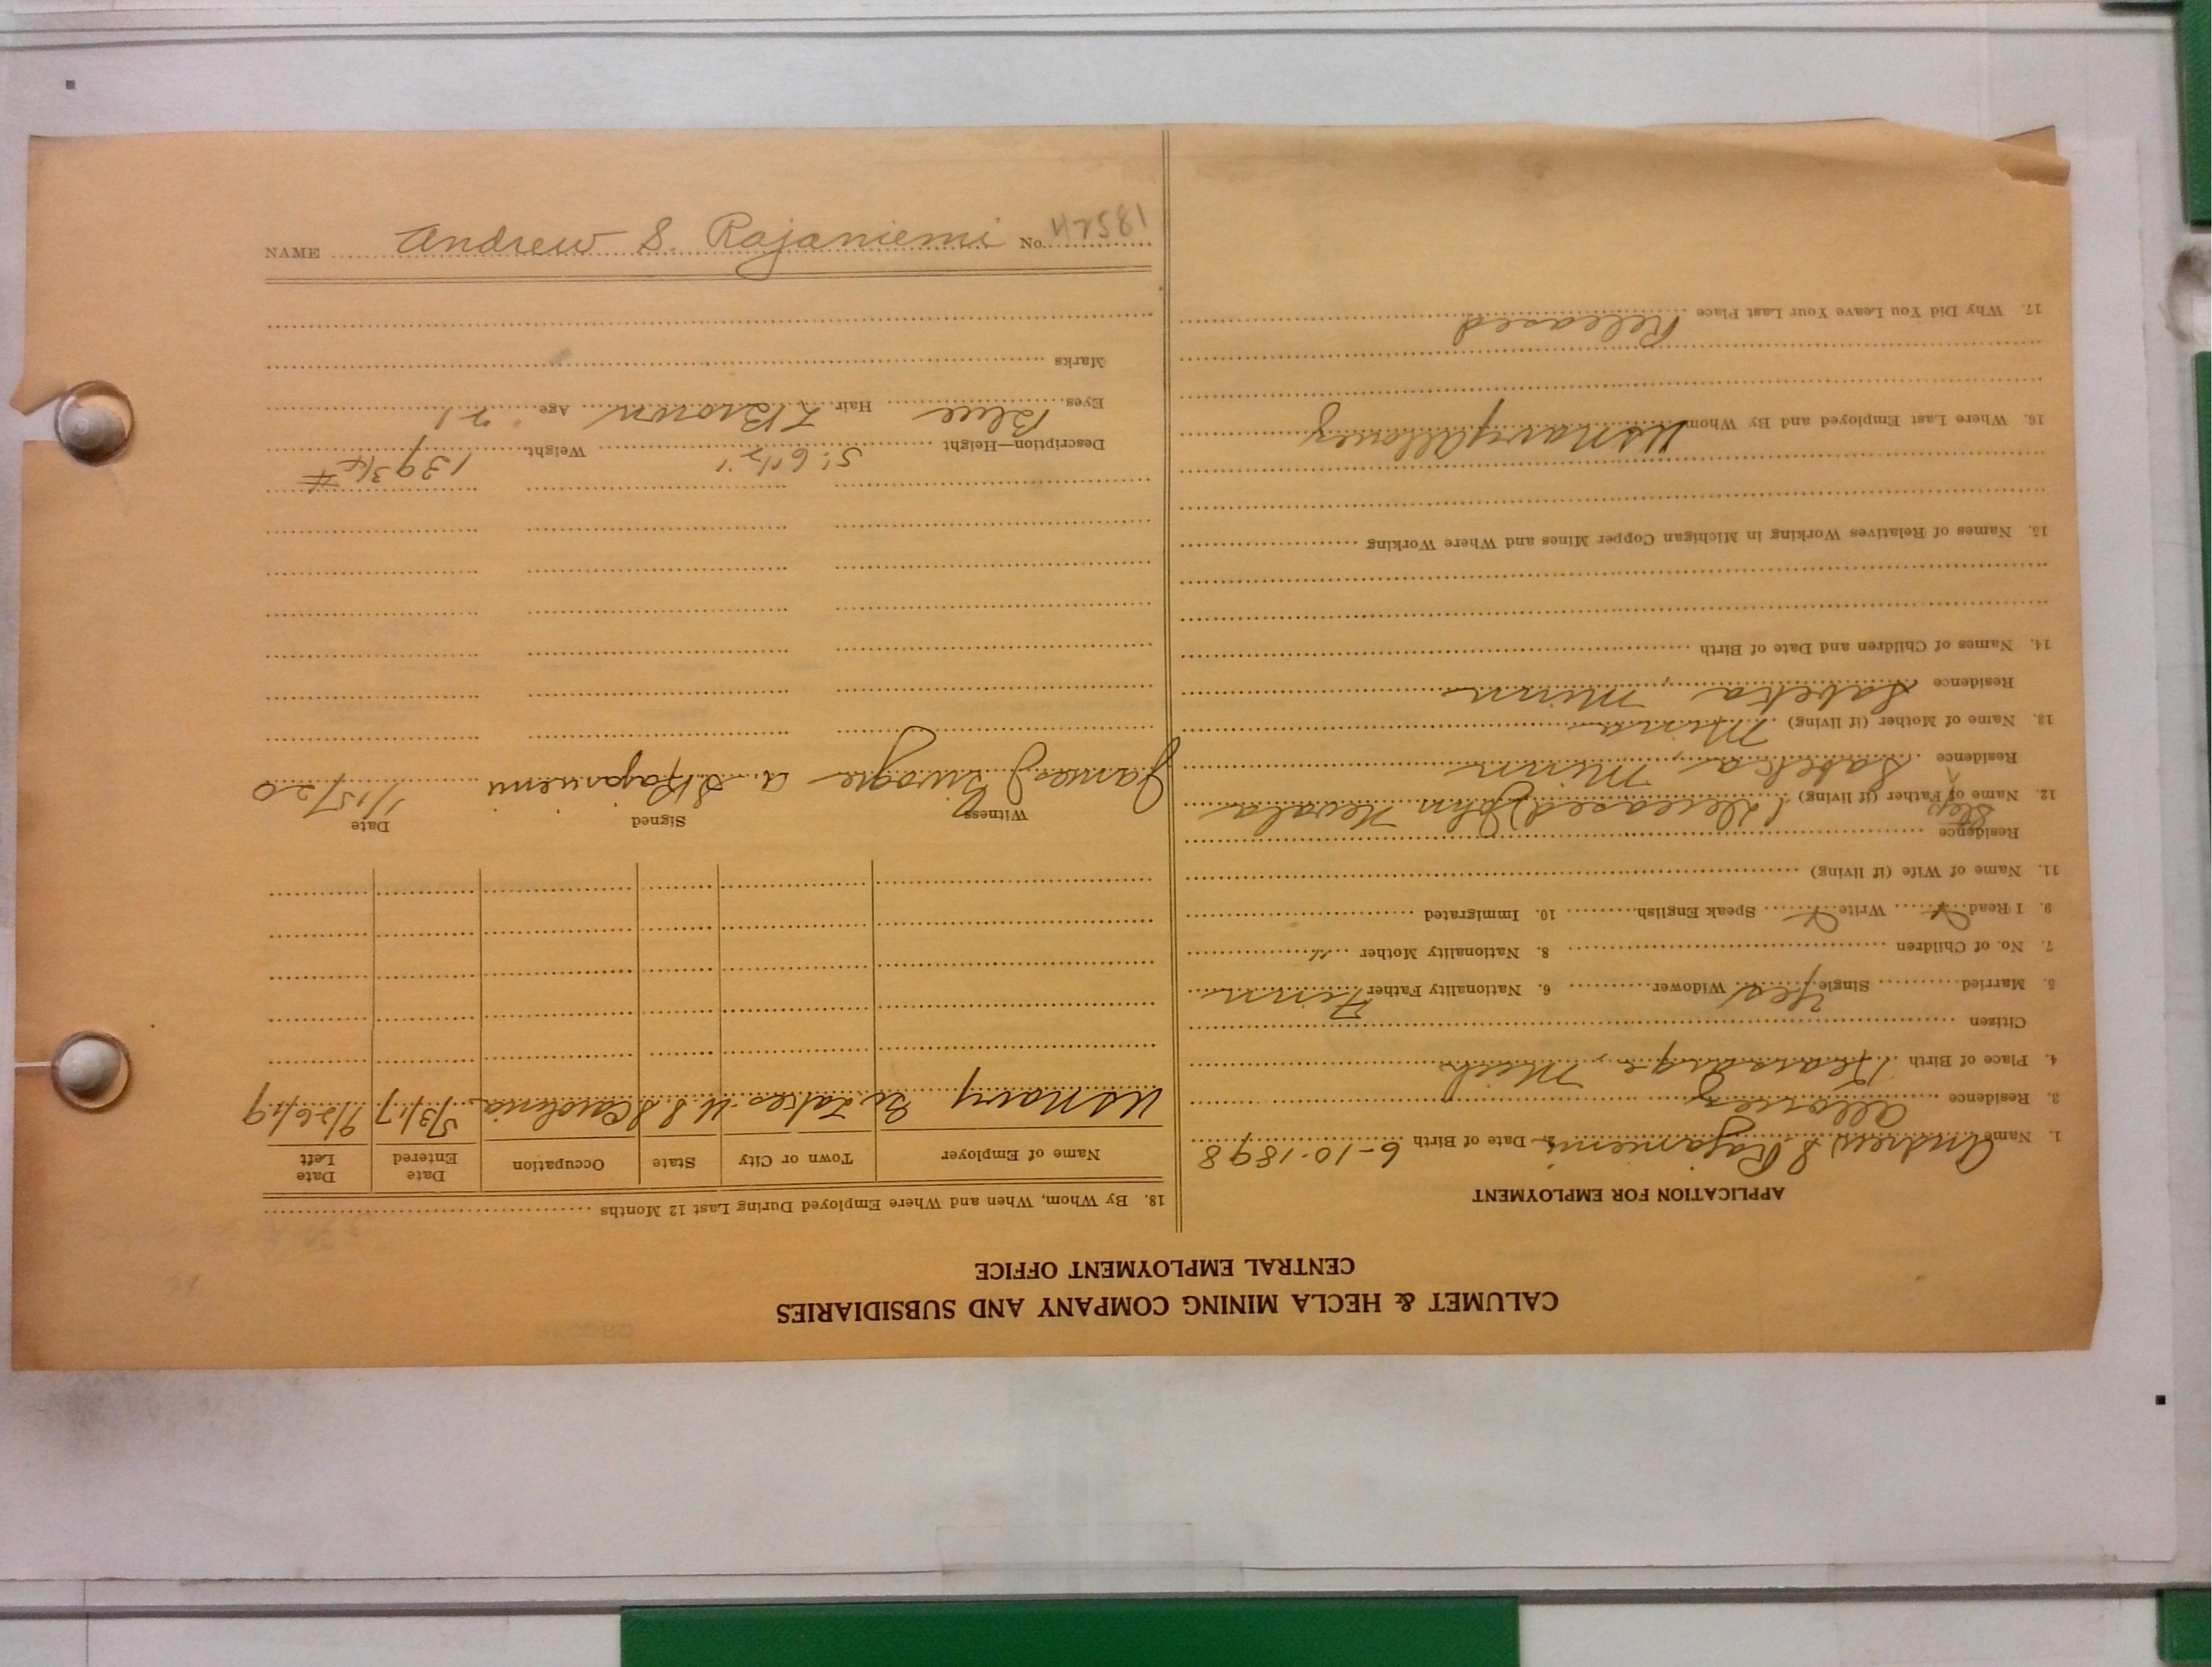 CALUMET & HECLA MINING COMPANY AND SUBSIDIARIES
CENTRAL EMPLOYMENT OFFICE
APPLICATION FOR EMPLOYMENT
1. Name Andrew S Rajaniemi 2. Date of Birth 6-10-1898
3. Residence Allouez
4. Place of Birth Kearsarge, Mich
Citizen
5. Married Single Yes Widower 6. Nationality Father Finn
7. No. of Children 8. Nationality Mother "
9. I Read Write Speak English 10. Immigrated
11. Name of Wife (if living)
Residence
12. Name of Step Father (if living) (Deceased) John
Residence Sabeka, Minn
13. Name of Mother (if living) Mina
Residence Sabeka, Minn
14. Names of Children and Date of Birth
15. Names of Relatives Working in Michigan Copper Mines and Where Working
16. Where Last Employed and By Whom US Navy Allouez
17. Why Did You Leave Your Last Place Released
18. By Whom, When and Where Employed During Last 12 Months
Name of Employer Town or City State Occupation Date Entered Date Left
US Navy Gr. Lakes U S S Carolina 5/3/17 9/26/19
Witness Signed Date
James J A. S Rajaniemi 1/15/20
Description—Height 5' 6 1/2" Weight 139 3/4 #
Eyes Blue Hair L Brown Age 21
Marks
NAME Andrew S. Rajaniemi No. 42581